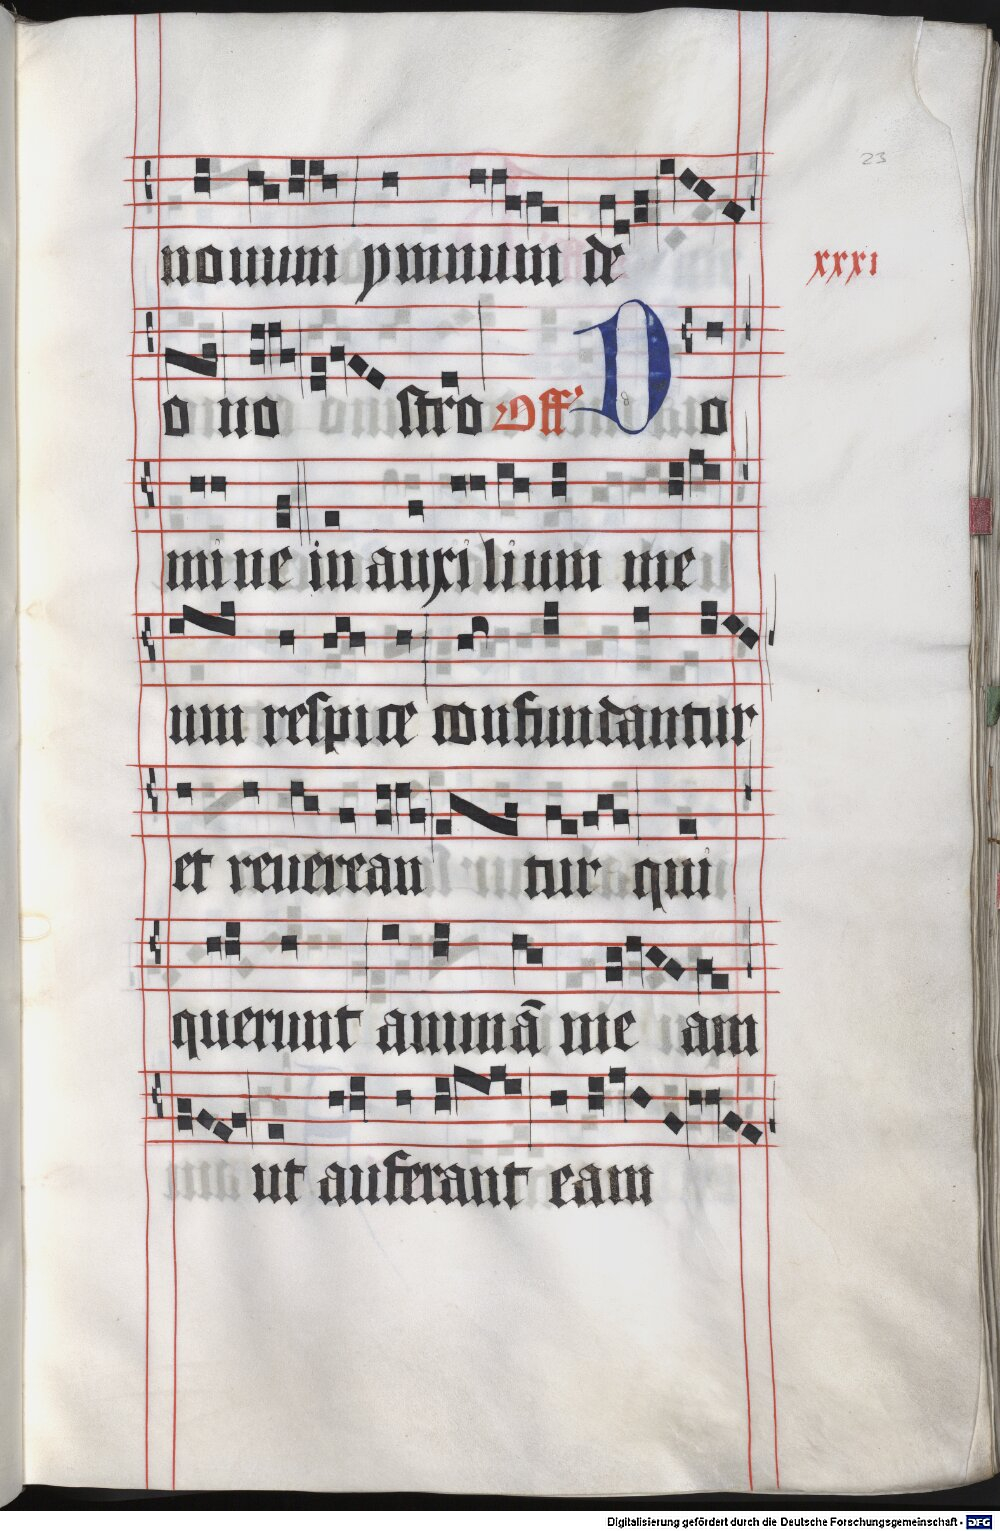 23
nouum ymnum de
xxxi
o no stro Off Do
mine in auxilium me
um respice confundantur
et reuerean tur qui
querunt animā me am
ut auferant eam
Digitalisierung gefördert durch die Deutsche Forschungsgemeinschaft - DFG